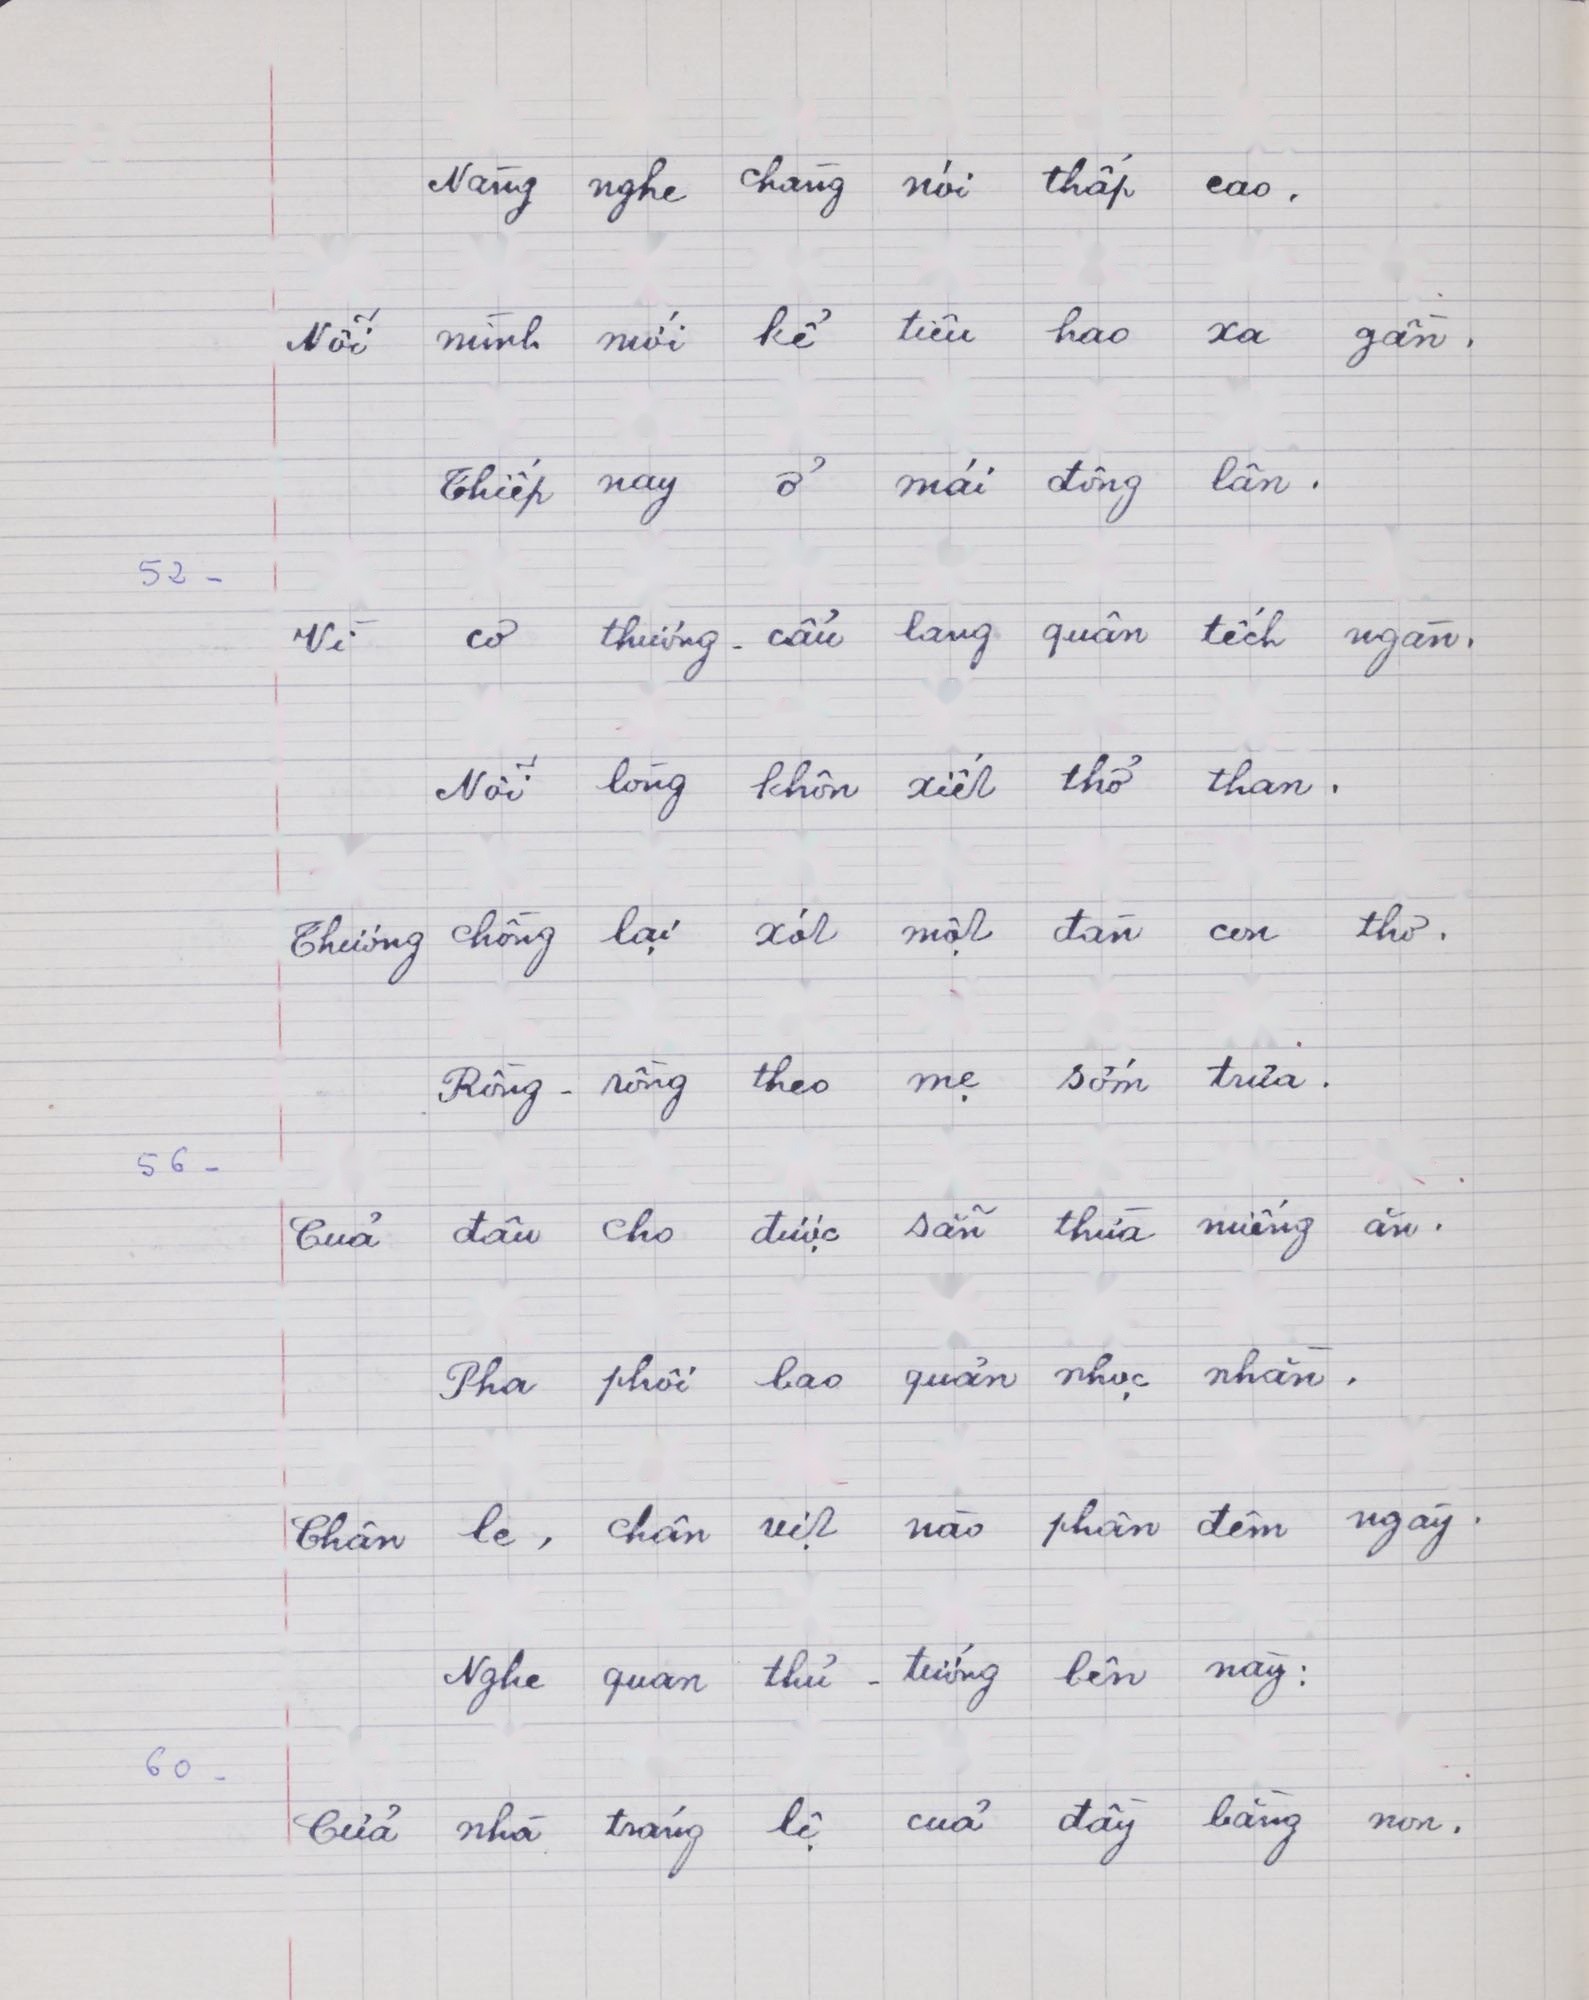 Nàng nghe chàng nói thấp cao.
Nỗi mình mới kể tiêu hao xa gần.
Thiếp nay ở mái đông lân.
52 -
Vì cơ thương - cẩu lang quân tếch ngàn.
Nỗi lòng khôn xiết thở than.
Thương chồng lại xót một đàn con thơ.
Ròng - ròng theo mẹ sớm trưa.
56 -
Của đâu cho được sẵn thừa miếng ăn.
Pha phôi bao quản nhọc nhằn.
Chân le, chân vịt nào phân đêm ngày.
Nghe quan thủ - tướng bên này:
60 -
Cửa nhà tráng lệ của đầy bằng non.